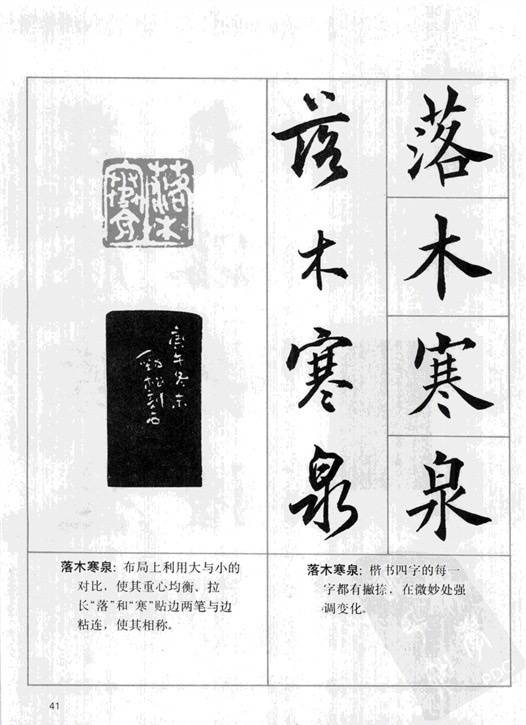 落木寒泉
落木寒泉
落木寒泉
庚午冬末
劲松刻石
落木寒泉：布局上利用大与小的
对比，使其重心均衡、拉
长“落”和“寒”贴边两笔与边
粘连，使其相称。
落木寒泉：楷书四字的每一
字都有撇捺，在微妙处强
调变化。
41